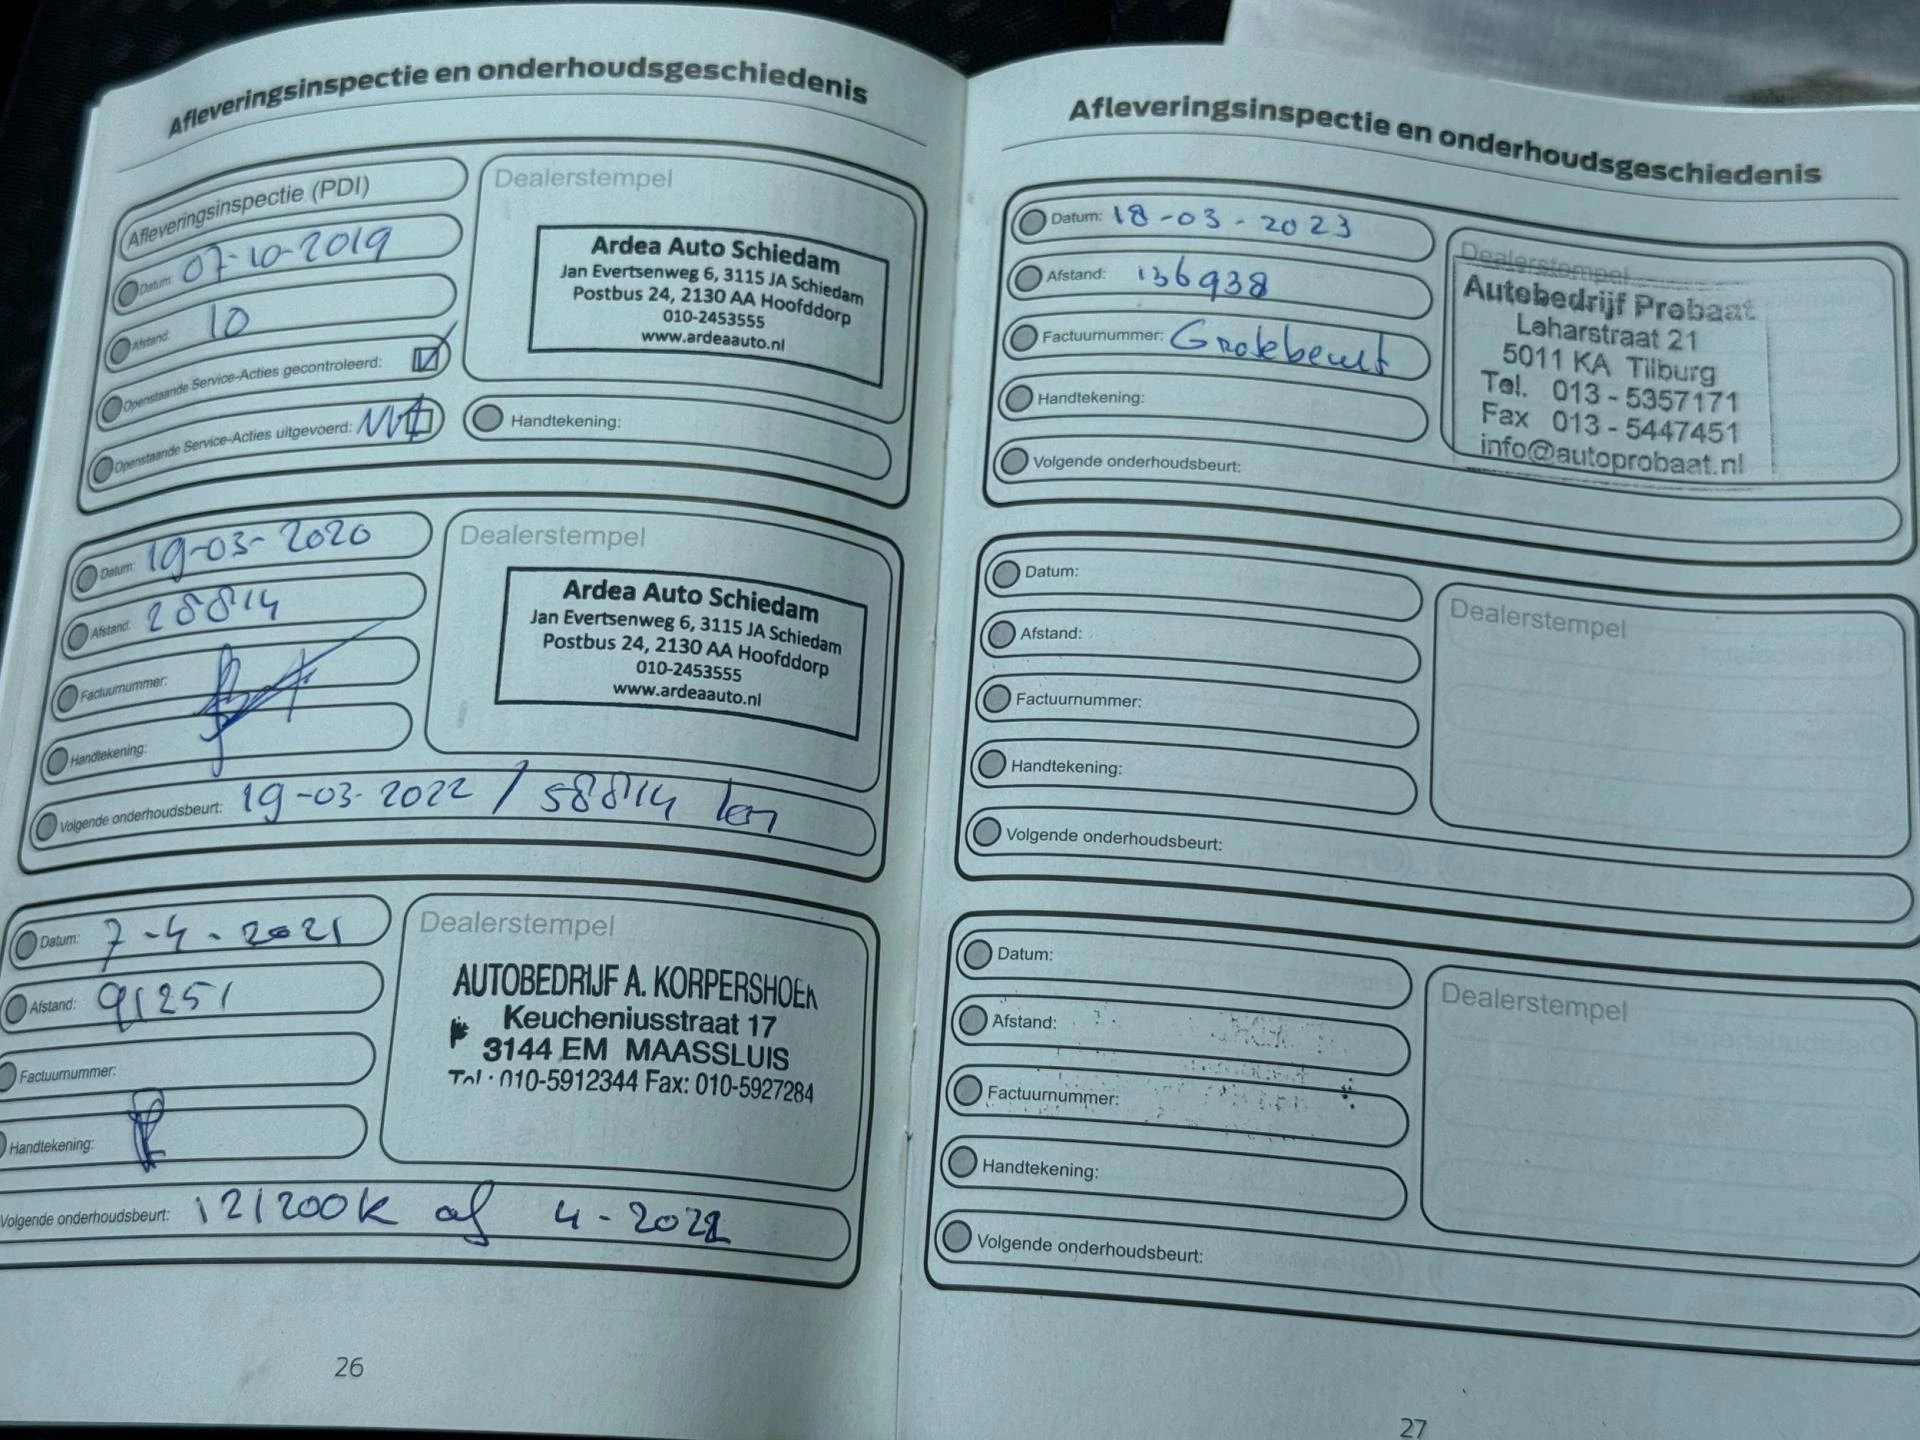 Afleveringsinspectie en onderhoudsgeschiedenis
Afleveringsinspectie (PDI)
Datum: 07-10-2019
Afstand: 10
Openstaande Service-Acties gecontroleerd:
Openstaande Service-Acties uitgevoerd:
Dealerstempel
Ardea Auto Schiedam
Jan Evertsenweg 6, 3115 JA Schiedam
Postbus 24, 2130 AA Hoofddorp
010-2453555
www.ardeaauto.nl
Handtekening:
Datum: 19-03-2020
Afstand: 28814
Factuurnummer:
Handtekening:
Dealerstempel
Ardea Auto Schiedam
Jan Evertsenweg 6, 3115 JA Schiedam
Postbus 24, 2130 AA Hoofddorp
010-2453555
www.ardeaauto.nl
Volgende onderhoudsbeurt: 19-03-2022 / 58814 km
Datum: 7-4-2021
Afstand: 91251
Factuurnummer:
Handtekening:
Dealerstempel
AUTOBEDRIJF A. KORPERSHOEK
Keucheniusstraat 17
3144 EM MAASSLUIS
Tel.: 010-5912344 Fax: 010-5927284
Volgende onderhoudsbeurt: 121200K of 4-2022
26
Afleveringsinspectie en onderhoudsgeschiedenis
Datum: 18-03-2023
Afstand: 136938
Factuurnummer: Grotebeurt
Handtekening:
Volgende onderhoudsbeurt:
Dealerstempel
Autobedrijf Probaat
Leharstraat 21
5011 KA Tilburg
Tel. 013 - 5357171
Fax 013 - 5447451
info@autoprobaat.nl
Datum:
Afstand:
Factuurnummer:
Handtekening:
Volgende onderhoudsbeurt:
Dealerstempel
Datum:
Afstand:
Factuurnummer:
Handtekening:
Volgende onderhoudsbeurt:
Dealerstempel
27